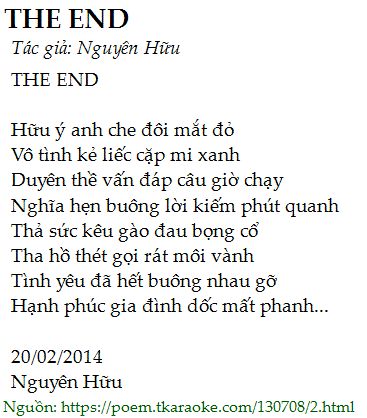 THE END
Tác giả: Nguyên Hữu
THE END
Hữu ý anh che đôi mắt đỏ
Vô tình kẻ liếc cặp mi xanh
Duyên thề vấn đáp câu giờ chạy
Nghĩa hẹn buông lời kiếm phút quanh
Thả sức kêu gào đau bọng cổ
Tha hồ thét gọi rát môi vành
Tình yêu đã hết buông nhau gỡ
Hạnh phúc gia đình dốc mất phanh...
20/02/2014
Nguyên Hữu
Nguồn: https://poem.tkaraoke.com/130708/2.html